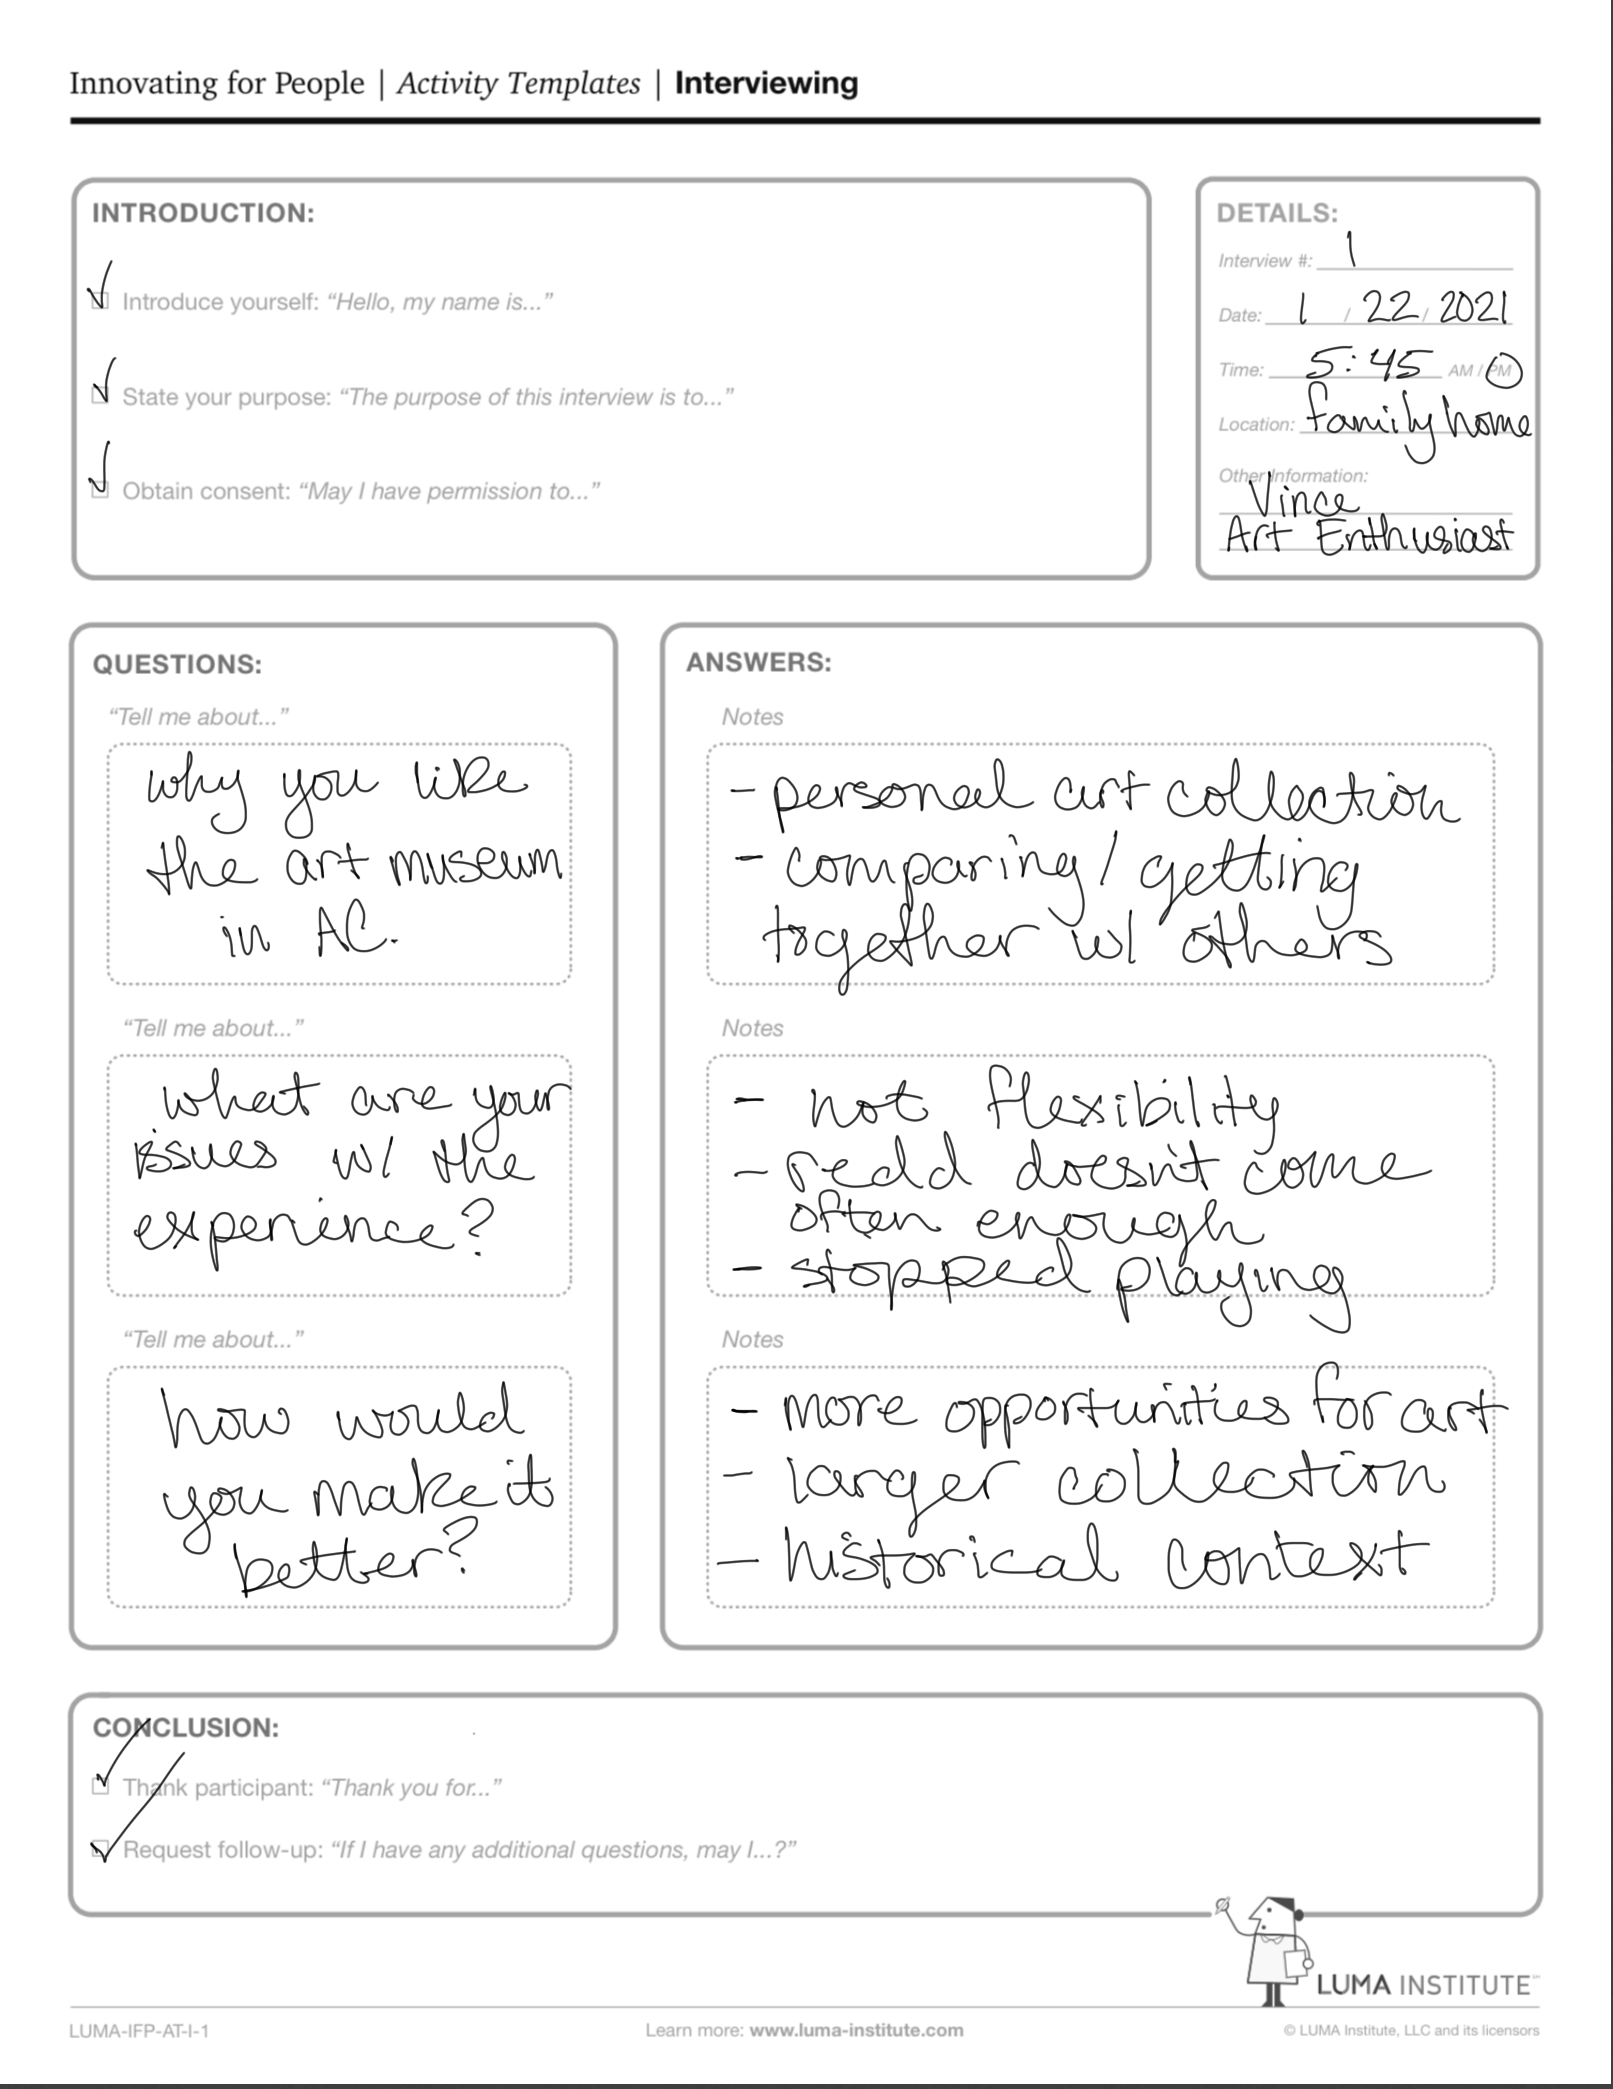 Innovating for People | Activity Templates | Interviewing
INTRODUCTION:
Introduce yourself: “Hello, my name is...”
State your purpose: “The purpose of this interview is to...”
Obtain consent: “May I have permission to...”
DETAILS:
Interview #: 1
Date: 1 / 22 / 2021
Time: 5:45 AM / PM
Location: family home
Other Information:
Vince
Art Enthusiast
QUESTIONS:
“Tell me about...”
why you like
the art museum
in AC.
“Tell me about...”
what are your
issues w/ the
experience?
“Tell me about...”
how would
you make it
better?
ANSWERS:
Notes
- personal art collection
- comparing / getting
together w/ others
Notes
- not flexibility
- redd doesn't come
often enough
- stopped playing
Notes
- more opportunities for art
- larger collection
- historical context
CONCLUSION:
Thank participant: “Thank you for...”
Request follow-up: “If I have any additional questions, may I...?”
LUMA INSTITUTE
LUMA-IFP-AT-I-1
Learn more: www.luma-institute.com
© LUMA Institute, LLC and its licensors